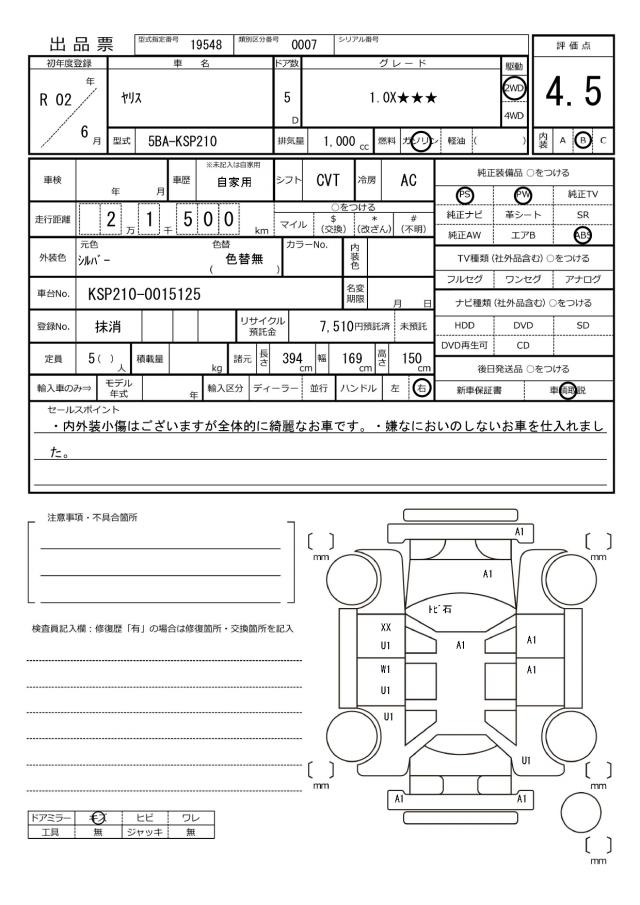 出品票 型式指定番号 19548 類別区分番号 0007 シリアル番号
評価点
4.5
内装 A B C
初年度登録 車名 ドア数 グレード 駆動
R 02 年 6 月 ヤリス 5 D 1.0X★★★ 2WD 4WD
型式 5BA-KSP210 排気量 1,000 cc 燃料 ガソリン 軽油 ( )
車検 年 月 車歴 ※未記入は自家用 自家用 シフト CVT 冷房 AC
走行距離 2 万 1 千 5 0 0 km ○をつける マイル $ (交換) * (改ざん) # (不明)
外装色 元色 シルバー 色替 ( 色替無 ) カラーNo. 内装色
車台No. KSP210-0015125 名変期限 月 日
登録No. 抹消 リサイクル預託金 7,510円預託済 未預託
定員 5( ) 人 積載量 kg 諸元 長さ 394 cm 幅 169 cm 高さ 150 cm
輸入車のみ⇒ モデル年式 年 輸入区分 ディーラー 並行 ハンドル 左 右
純正装備品 ○をつける
PS PW 純正TV
純正ナビ 革シート SR
純正AW エアB ABS
TV種類 (社外品含む) ○をつける
フルセグ ワンセグ アナログ
ナビ種類 (社外品含む) ○をつける
HDD DVD SD
DVD再生可 CD
後日発送品 ○をつける
新車保証書 車輌取説
セールスポイント
・内外装小傷はございますが全体的に綺麗なお車です。・嫌なにおいのしないお車を仕入れまし
た。
注意事項・不具合箇所
検査員記入欄：修復歴「有」の場合は修復箇所・交換箇所を記入
ドアミラー キズ ヒビ ワレ
工具 無 ジャッキ 無
A1
mm mm
A1
トビ石
XX
U1 A1 A1
W1 A1
U1
U1
U1
mm mm
A1 A1
mm